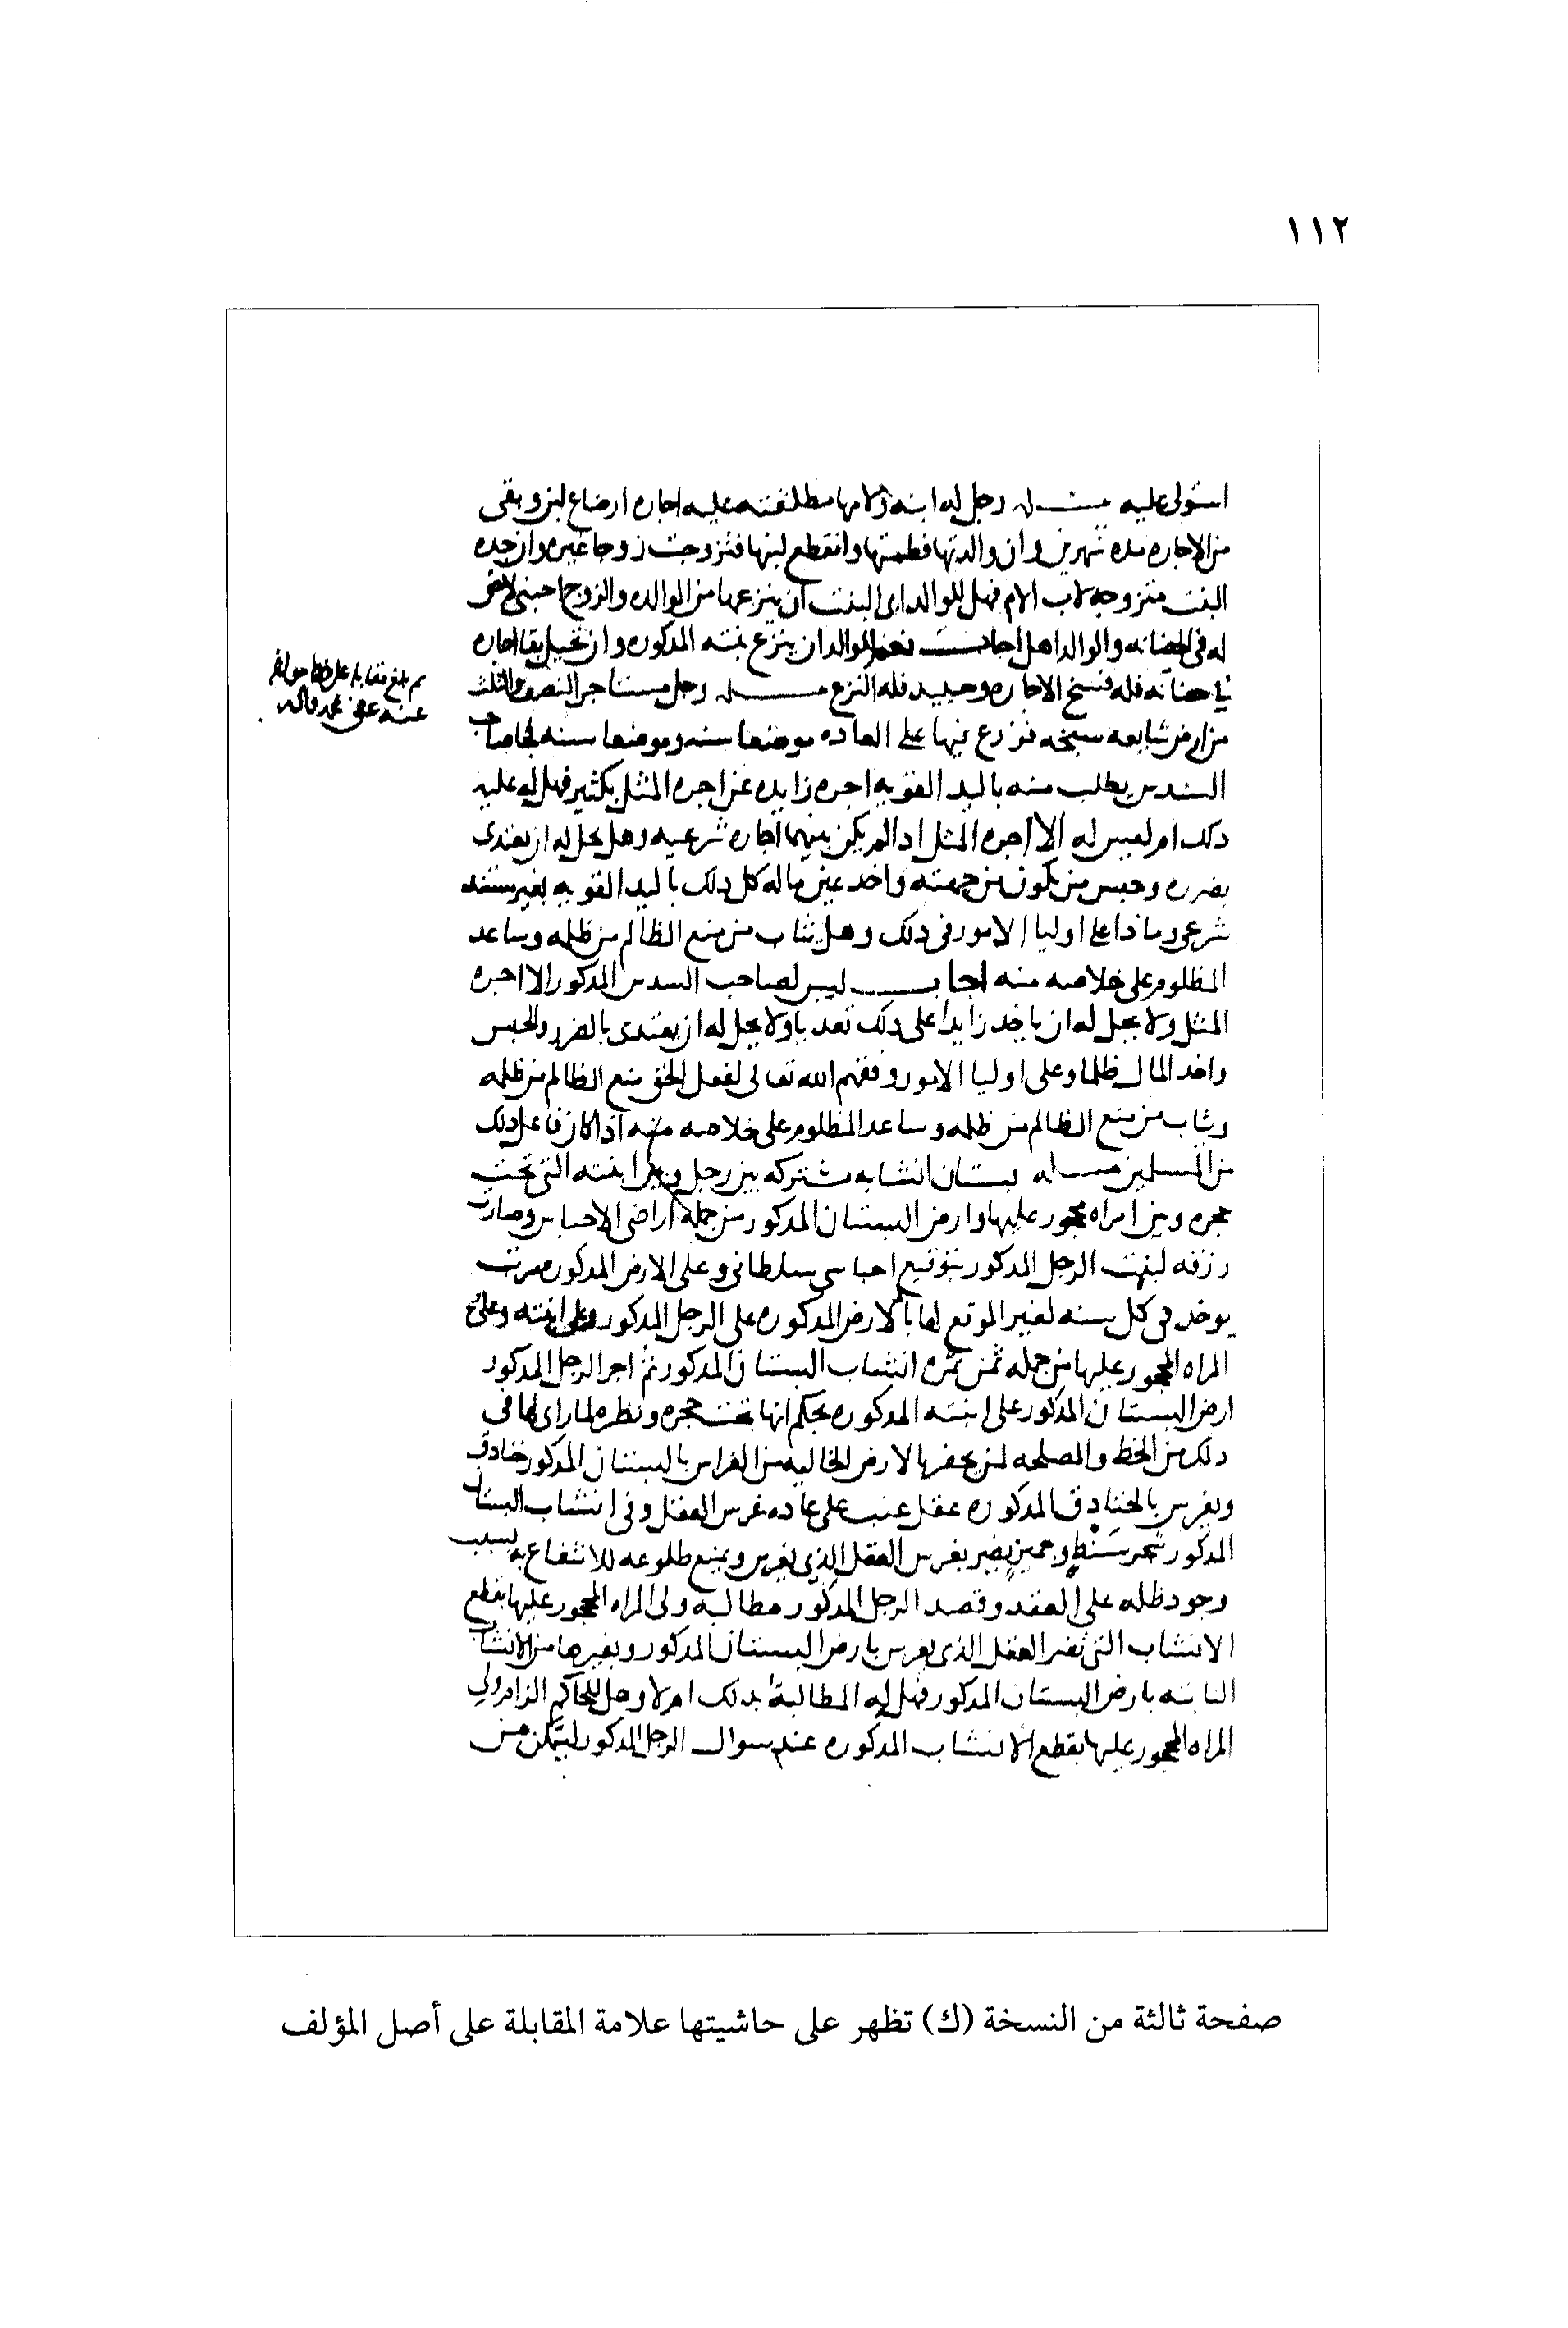 ١١٢
استولى عليه مسله رجل له ابنة ولامها مطلقته عليه اجاره ارضاع لبن وبقى
من الاجاره مده شهرين وان والدتها فطمتها وانقطع لبنها فتزوجت زوجا غيره وان جده
البنت متزوجه لاب الام فهل للوالد ابى البنت ان ينزعها من الوالده والزوج اجنبى لاحق
له فى الحضانه والوالد اهل اجاب نعم للوالد ان ينزع بنته المدكوره وان تخيل بقا اجاره
فى حضانه فله فسخ الاجاره وحينيد فله النزع مسله رجل مستاجر النصف والثلث
من ارض شايعه سبخه فزرع فيها على العاده بوضعها سنه وبوضعها سنه فجا صاحب
السدس يطلب منه باليد القويه اجره زايده عن اجره المثل بكثير فهل له عليه
دلك ام ليس له الا اجره المثل ادا لم يكن بينهما اجاره شرعيه وهل يحل له ان يعتدى
بضربه وحبس من يكون من جهته واخد عين ماله كل دلك باليد القويه بغير مستند
شرعى وما دا على اوليا الامور فى دلك وهل يثاب من منع الظالم من ظلمه وساعد
المظلوم على خلاصه منه اجاب ليس لصاحب السدس المدكور الا اجره
المثل ولا يحل له ان ياخد زايدا على دلك تعديا ولا يحل له ان يعتدى بالضرر والحبس
واخد المال ظلما وعلى اوليا الامور وفقهم الله تعالى لفعل الحق منع الظالم من ظلمه
ويثاب من منع الظالم من ظلمه وساعد المظلوم على خلاصه منه ادا كان فاعل دلك
من المسلمين مسله بستان انشابه مشتركه بين رجل وبين ابنته التى تحت
حجره وبين امراه محجور عليها وارض البستان المدكور من جمله اراضى الاحباس وصارت
رزقه لبنت الرجل المدكور بتوقيع احباسى سلطانى وعلى الارض المدكوره مرتب
يوخد فى كل سنه لغير الموقع لها بالارض المدكوره على الرجل المدكور وعلى ابنته وعلى
المراه المحجور عليها من جمله ثمن ثمره انشاب البستان المدكور ثم اجر الرجل المدكور
ارض البستان المدكور على ابنته المدكوره بحكم انها تحت حجره ونظره لما راى لها فى
دلك من الحظ والمصلحه لمن يحفر بالارض الخاليه من الغراس بالبستان المدكور خنادق
ويغرس بالخنادق المدكوره عقل عنب على عاده غرس العقل وفى انشاب البستان
المدكور شجر سنط وجميز يضر بغرس العقل الذى يغرس ويمنع طلوعه للانتفاع به بسبب
وجود ظله على العقد وقصد الرجل المدكور مطالبه ولى المراه المحجور عليها بقطع
الانشاب التى تضر العقل الذى يغرس بارض البستان المدكور وبغيرها من الانشاب
النابته بارض البستان المدكور فهل له المطالبة بدلك ام لا وهل للحاكم الزام ولى
المراه المحجور عليها بقطع الانشاب المدكوره عند سوال الرجل المدكور ليتمكن من
ثم بلغ مقابلة على خط مولفه
عفى عنه
صفحة ثالثة من النسخة (ك) تظهر على حاشيتها علامة المقابلة على أصل المؤلف